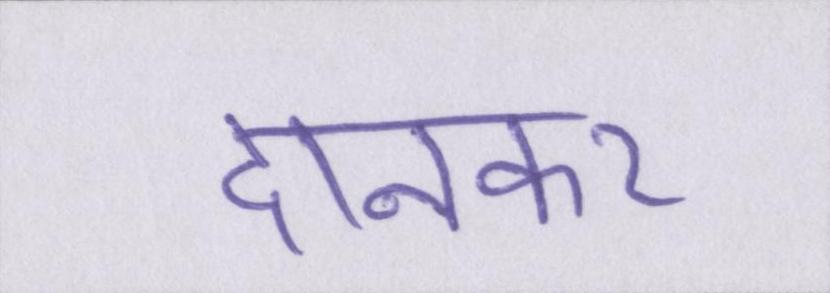 दानकर